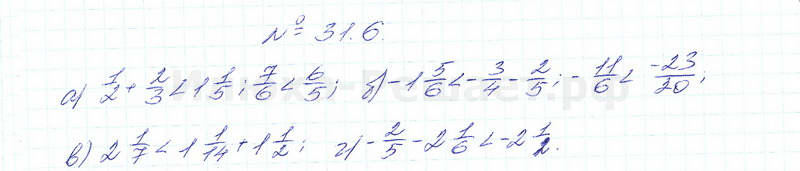 № 31.6.
а) 1/2 + 2/3 < 1 1/5; 7/6 < 6/5; б) -1 5/6 < -3/4 - 2/5; -11/6 < -23/20;
в) 2 1/7 < 1 1/14 + 1 1/2; г) -2/5 - 2 1/6 < -2 1/2.